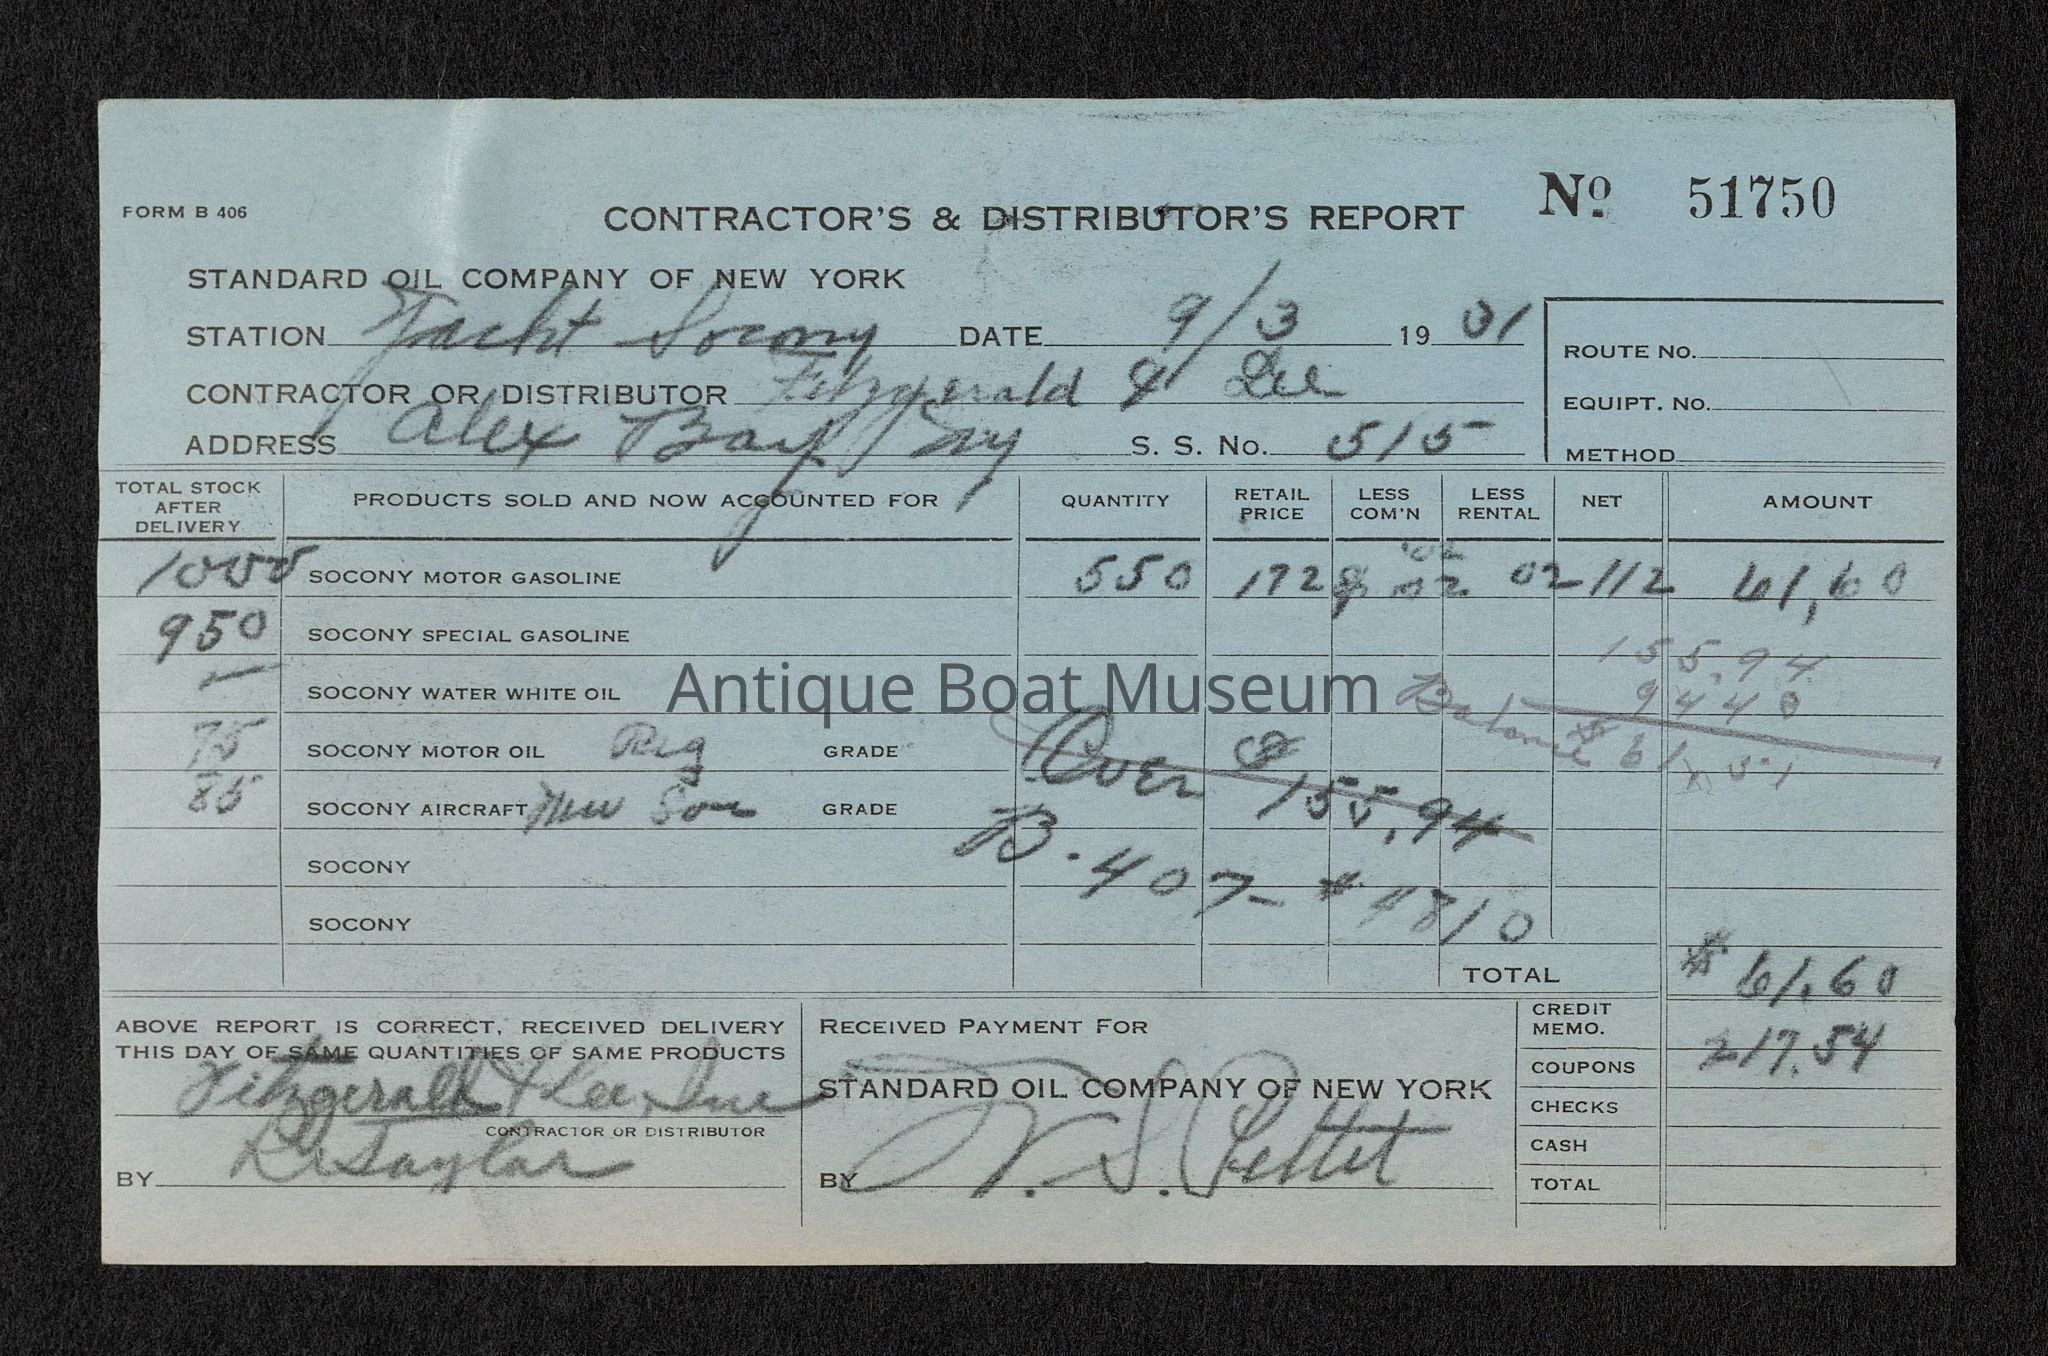 FORM B 406
CONTRACTOR'S & DISTRIBUTOR'S REPORT
No 51750
STANDARD OIL COMPANY OF NEW YORK
STATION Yacht Socony DATE 9/3 1931
ROUTE No.
CONTRACTOR OR DISTRIBUTOR Fitzgerald & Lee
EQUIPT. No.
ADDRESS Alex Bay NY S. S. No. 515
METHOD
TOTAL STOCK AFTER DELIVERY PRODUCTS SOLD AND NOW ACCOUNTED FOR QUANTITY RETAIL PRICE LESS COM'N LESS RENTAL NET AMOUNT
1000 SOCONY MOTOR GASOLINE 550 172 02 02 112 61.60
950 SOCONY SPECIAL GASOLINE
155.94
SOCONY WATER WHITE OIL
Antique Boat Museum
9440
Balance $61.51
75 SOCONY MOTOR OIL Reg GRADE
Over $155.94
85 SOCONY AIRCRAFT GRADE
B.407- $
SOCONY
SOCONY
TOTAL $61.60
ABOVE REPORT IS CORRECT, RECEIVED DELIVERY
THIS DAY OF SAME QUANTITIES OF SAME PRODUCTS
Fitzgerald & Lee, Inc
CONTRACTOR OR DISTRIBUTOR
BY Taylor
RECEIVED PAYMENT FOR
STANDARD OIL COMPANY OF NEW YORK
BY S. Pettit
CREDIT MEMO.
217.54
COUPONS
CHECKS
CASH
TOTAL